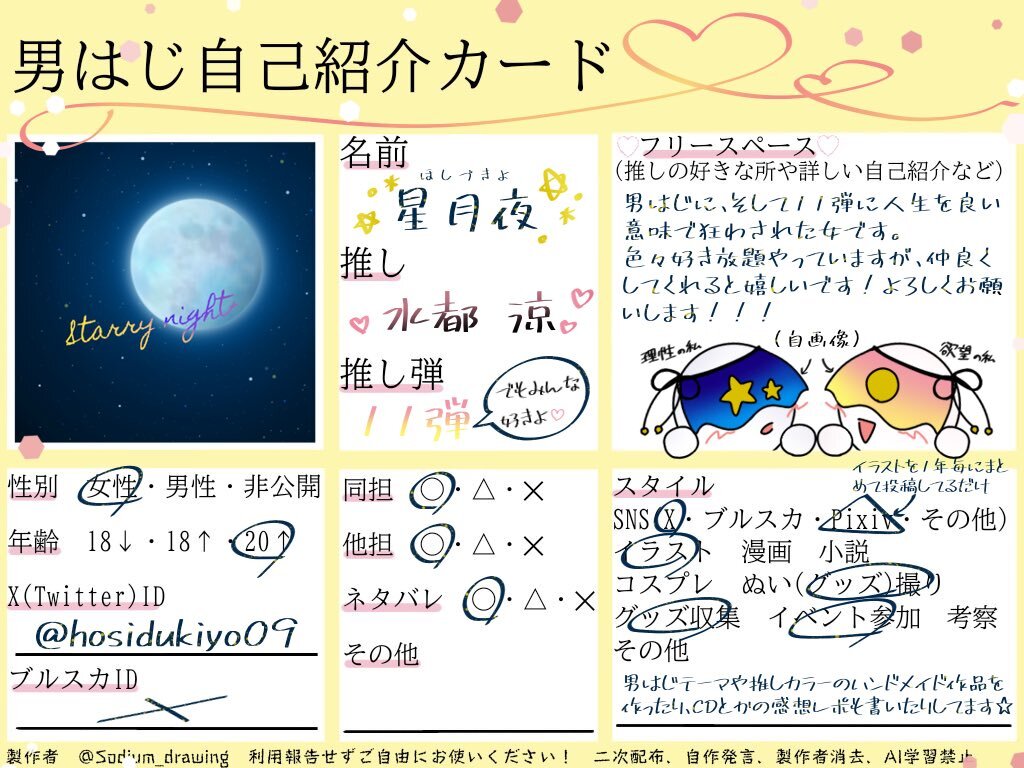 男はじ自己紹介カード
starry night
名前
ほしづきよ
星月夜
推し
♡水都 涼♡
推し弾
11弾
でもみんな
好きよ♡
♡フリースペース♡
(推しの好きな所や詳しい自己紹介など)
男はじに、そして11弾に人生を良い
意味で狂わされた女です。
色々好き放題やっていますが、仲良く
してくれると嬉しいです!よろしくお願
いします!!!
(自画像)
理性の私
欲望の私
性別 女性・男性・非公開
年齢 18↓・18↑・20↑
X(Twitter)ID
@hosidukiyo09
ブルスカID
同担 ○・△・×
他担 ○・△・×
ネタバレ ○・△・×
その他
イラストを1年毎にまと
めて投稿してるだけ
スタイル
SNS(X・ブルスカ・Pixiv・その他)
イラスト 漫画 小説
コスプレ ぬい(グッズ)撮り
グッズ収集 イベント参加 考察
その他
男はじテーマや推しカラーのハンドメイド作品を
作ったり、CDとかの感想レポも書いたりしてます☆
製作者 @Sodium_drawing 利用報告せずご自由にお使いください! 二次配布、自作発言、製作者消去、AI学習禁止